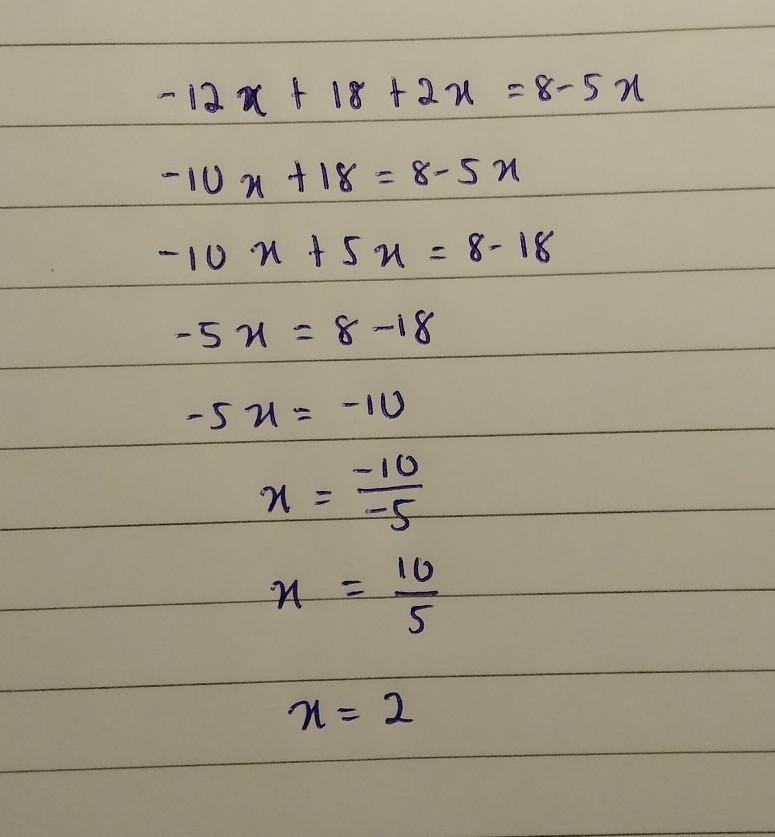 -12x + 18 + 2x = 8-5x
-10x + 18 = 8-5x
-10x + 5x = 8-18
-5x = 8-18
-5x = -10
x = -10/-5
x = 10/5
x = 2